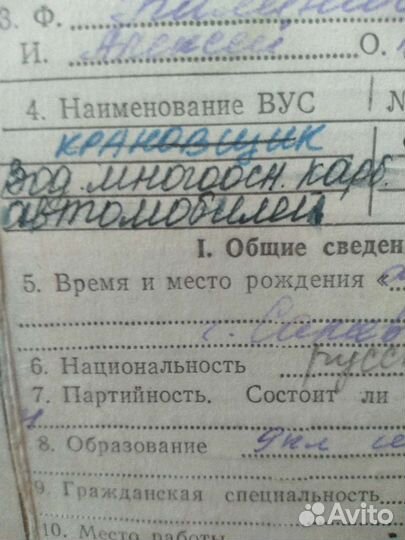 3. Ф.
И. Алексей О.
4. Наименование ВУС №
крановщик
Вод. многоосн. карб.
автомобилей
I. Общие сведен
5. Время и место рождения «
г.
6. Национальность русс
7. Партийность. Состоит ли
8. Образование 9 кл
9. Гражданская специальность
10. Место работы
Avito